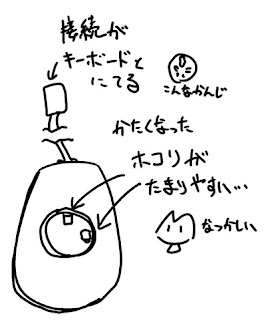 接続が
キーボードと
にてる
こんなかんじ
かたくなった
ホコリが
たまりやすい…
なつかしい